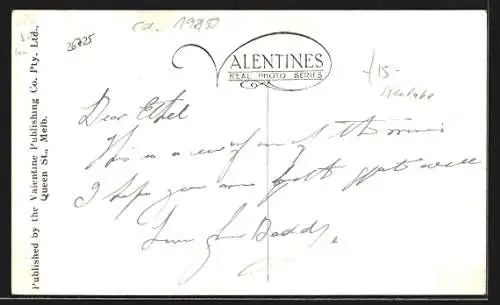 ca. 1950
26725
VALENTINES
REAL PHOTO SERIES
£15-
Published by the Valentine Publishing Co. Pty. Ltd.,
Queen St., Melb.
Dear Ethel
This is a view of one of the
I hope you are quite well
Love from Daddy